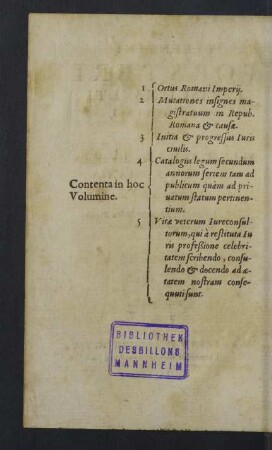 1 Ortus Romani Imperij.
2 Mutationes insignes ma-
gistratuum in Repub.
Romana & causæ.
3 Initia & progressus Iuris
ciuilis.
4 Catalogus legum secundum
annorum seriem tam ad
publicum quàm ad pri-
uatum statum pertinen-
tium.
Contenta in hoc
Volumine.
5 Vitæ veterum Iureconsul-
torum, qui à restituta Iu
ris professione celebri-
tatem scribendo, consu-
lendo & docendo ad æ-
tatem nostram conse-
quuti sunt.
BIBLIOTHEK
DESBILLONS
MANNHEIM